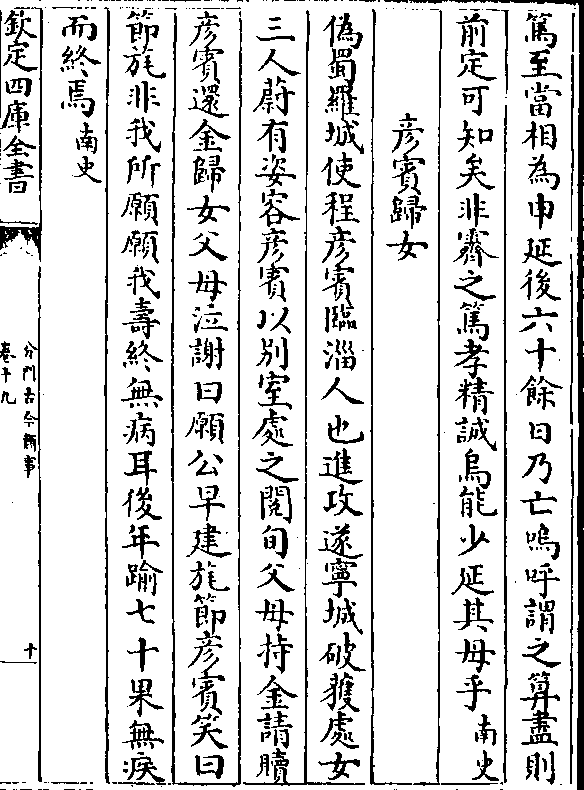 篤至當相為申延後六十餘日乃亡嗚呼謂之算盡則
前定可知矣非齋之篤孝精誠烏能少延其母乎南史
彦賓歸女
偽蜀羅城使程彦賓臨淄人也進攻遂寧城破獲處女
三人蔚有姿容彦賓以别室處之閱旬父母持金請贖
彦賓還金歸女父母泣謝曰願公早建旄節彦賓笑曰
節旄非我所願願我壽終無病耳後年踰七十果無疾
而終焉南史
欽定四庫全書
分門古今類事
卷十九
十